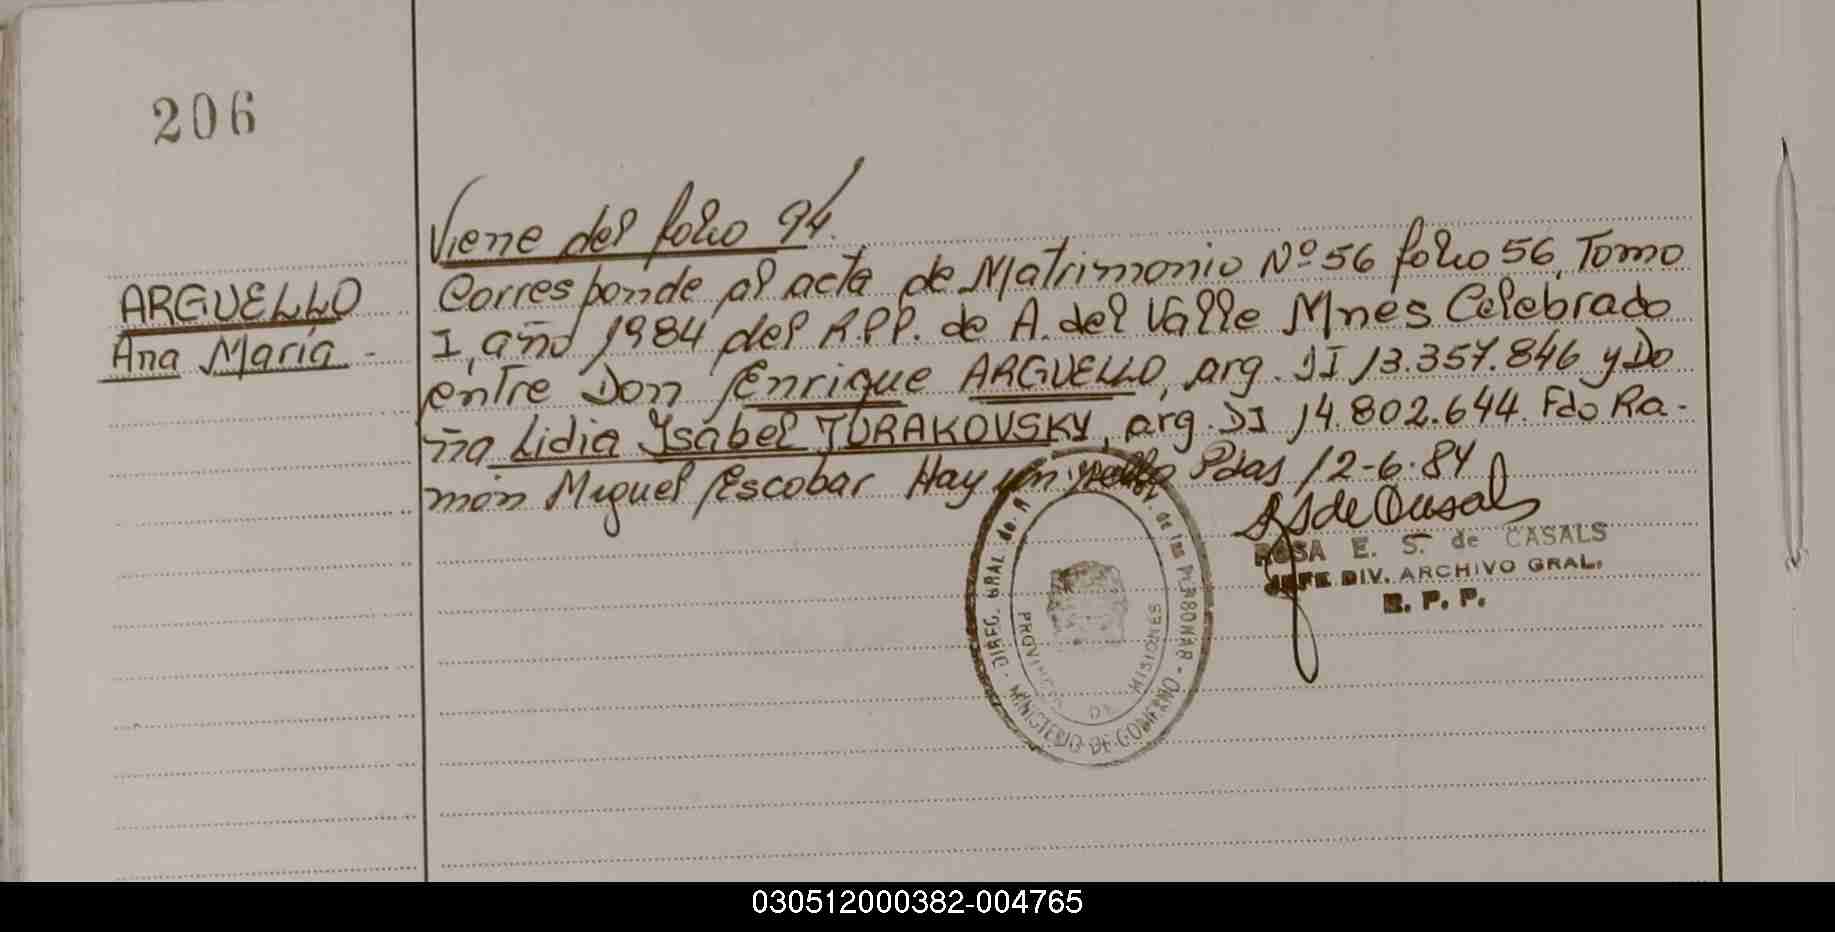 206
Viene del folio 94.
ARGUELLO
Ana María -
Corresponde al acta de Matrimonio Nº 56 folio 56, Tomo
I, año 1984 del R.P.P. de A. del Valle Mnes Celebrado
entre Don Enrique ARGUELLO, arg. DI 13.357.846 y Do
ña Lidia Ysabel TURAKOVSKY, arg. DI 14.802.644. Fdo Ra-
món Miguel Escobar Hay un sello Pdas 12-6-84
ROSA E. S. de CASALS
JEFE DIV. ARCHIVO GRAL.
R. P. P.
DIREC. GRAL de
de las PERSONAS - MINISTERIO DE GOBIERNO -
PROVINCIA DE MISIONES
030512000382-004765